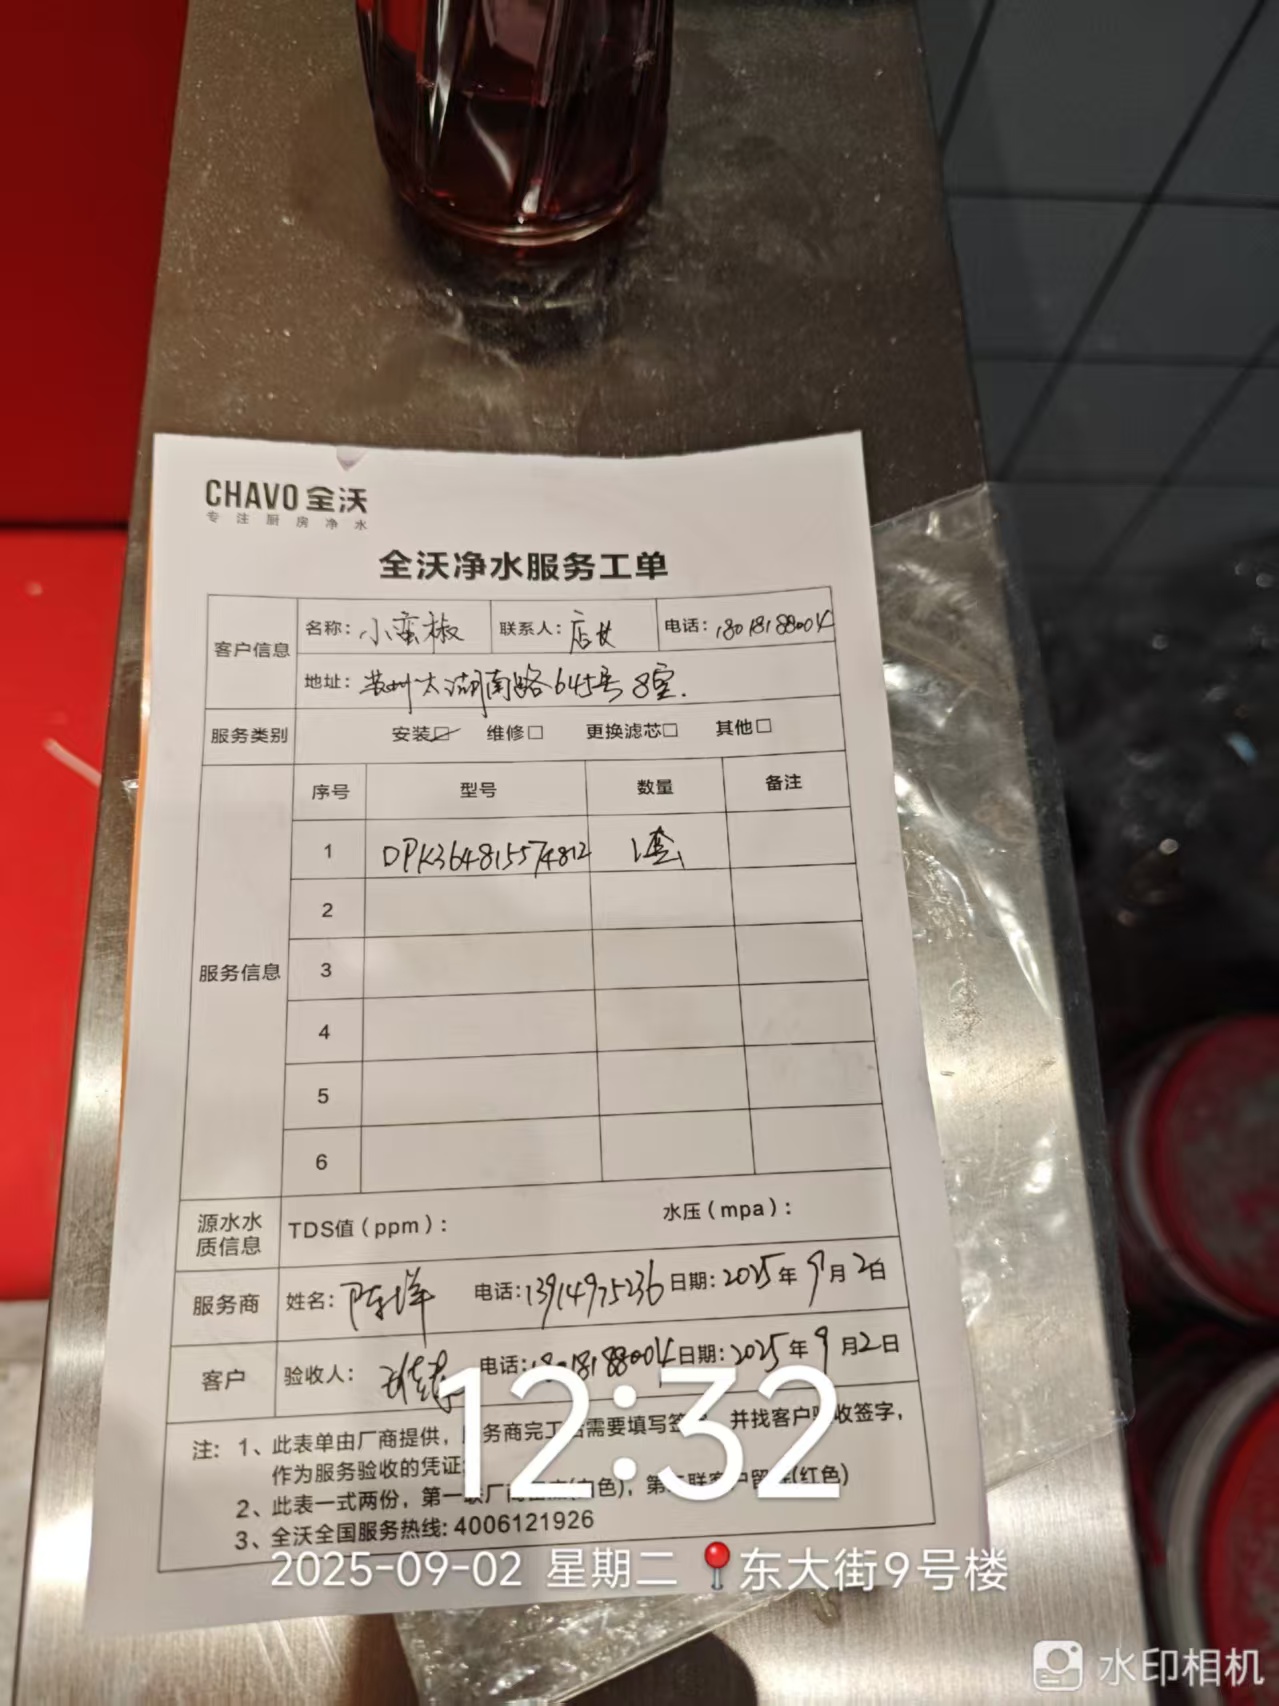 CHAVO 全沃
专注厨房净水
全沃净水服务工单
客户信息 名称：小蛮椒 联系人：店长 电话：18018188004
地址：苏州太湖南路645号8室.
服务类别 安装☑ 维修□ 更换滤芯□ 其他□
服务信息 序号 型号 数量 备注
1 DPK364815574812 1套
2
3
4
5
6
源水水质信息 TDS值（ppm）： 水压（mpa）：
服务商 姓名：陈洋 电话：13914975236 日期：2025年9月2日
客户 验收人： 电话：18018188004 日期：2025年9月2日
12:32
注：1、此表单由厂商提供，务商完工后需要填写签，并找客户验收签字，
作为服务验收的凭证
2、此表一式两份，第一联厂商(白色)，第二联客户留(红色)
3、全沃全国服务热线：4006121926
2025-09-02 星期二 东大街9号楼
水印相机